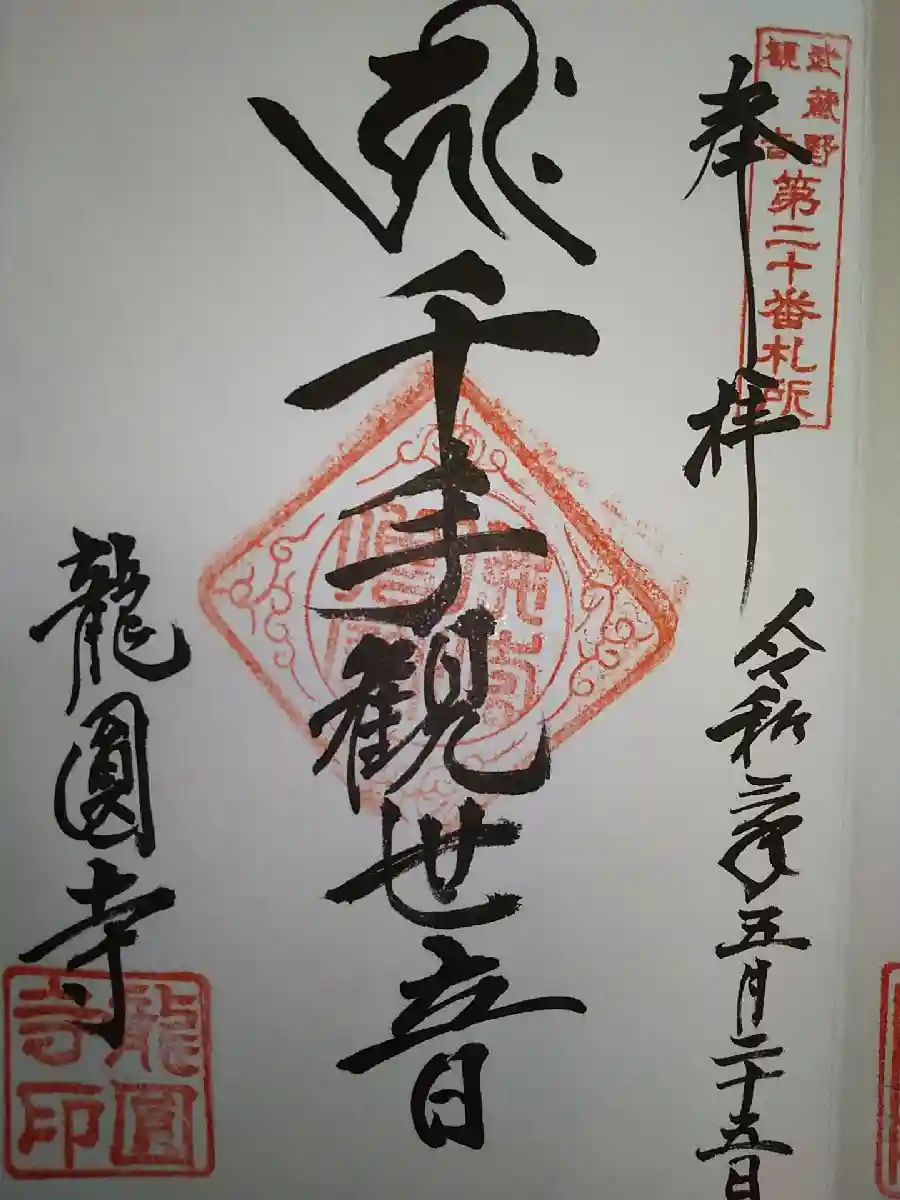 武蔵野
観音
第二十番札所
奉拝
令和 年五月二十五日
千手観世音
龍圓寺
龍圓
寺印